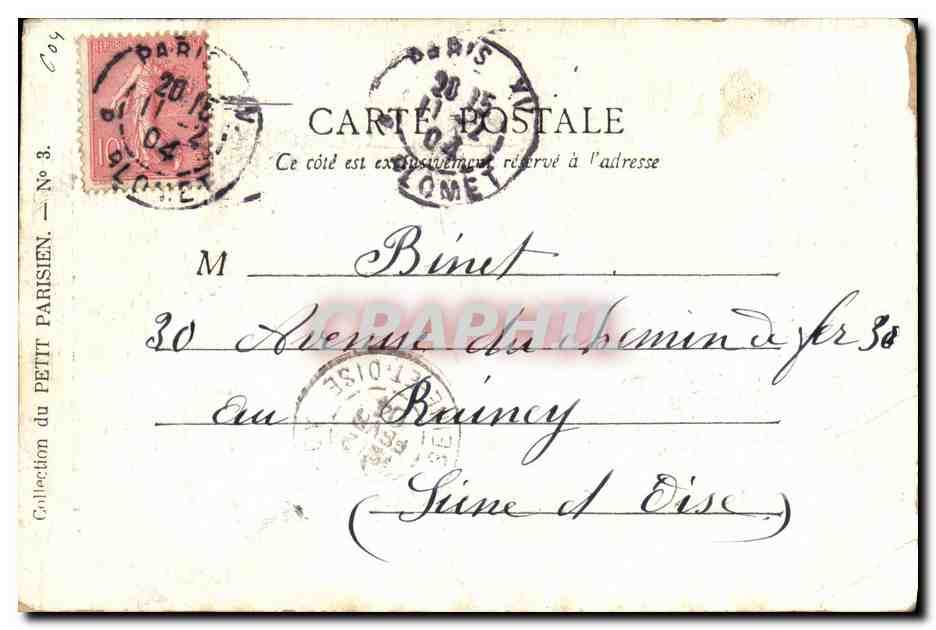 C04
PARIS XV
20 15
11 -2
04
R. BLOMET
10
PARIS XV
20 15
11 -2
04
R. BLOMET
CARTE POSTALE
Ce côté est exclusivement réservé à l'adresse
M Binet
CPAPHIL
30 Avenue du chemin de fer 30
au Raincy
(Seine et Oise)
SEINE-ET-OISE
Collection du PETIT PARISIEN. — No 3.